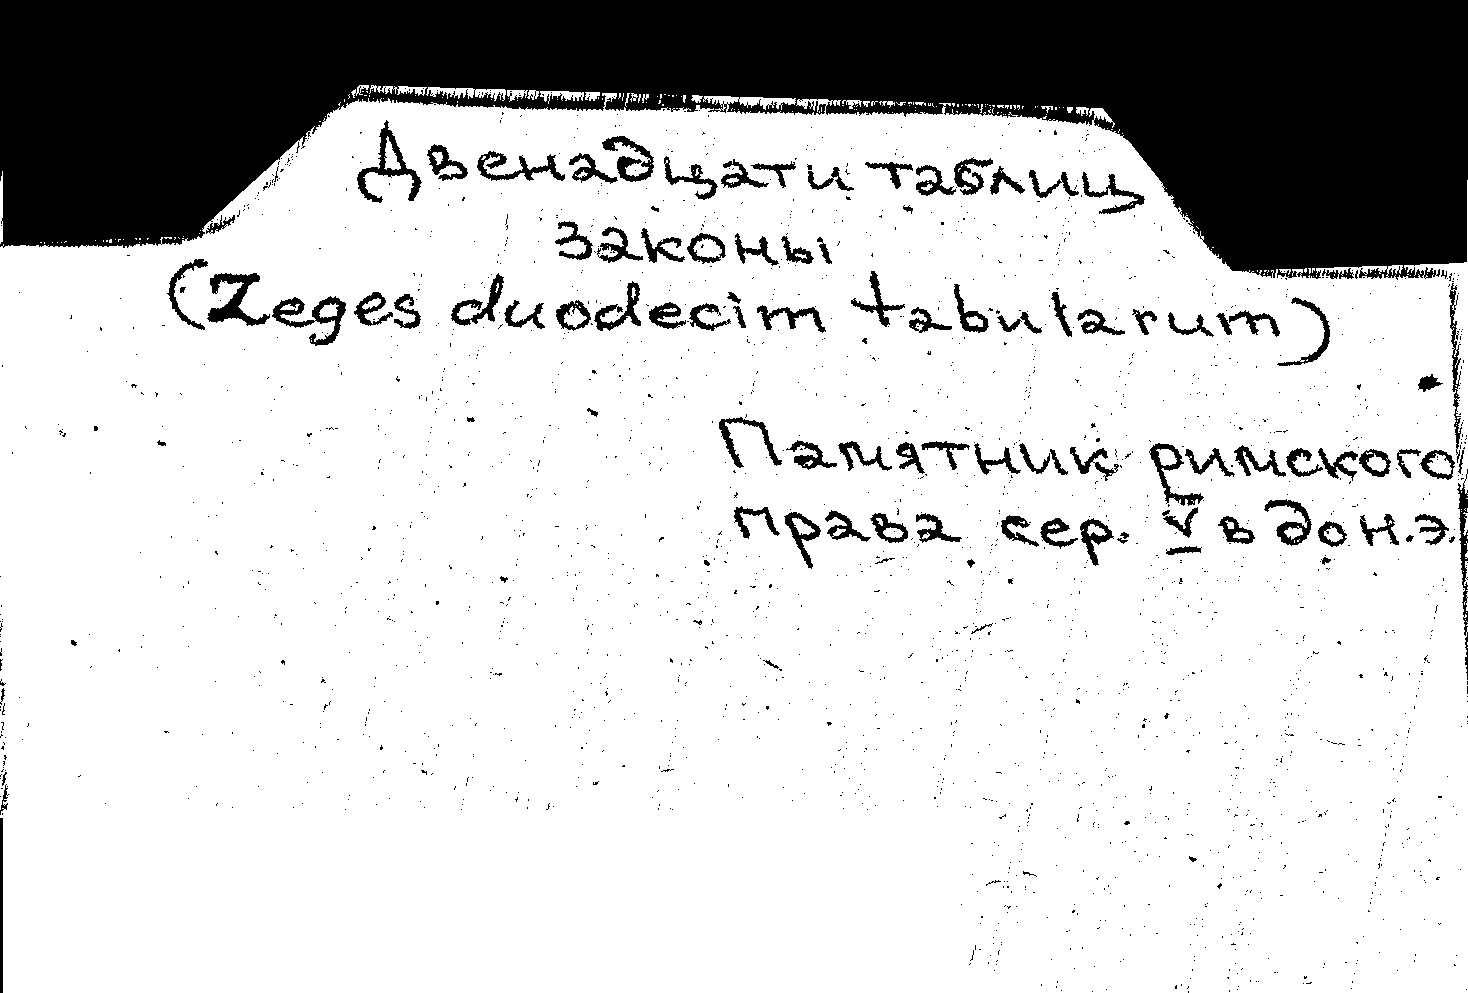 Двенадцати таблиц
законы
(Leges duodecim tabularum)
Памятник римского
права сер. V в до н.э.